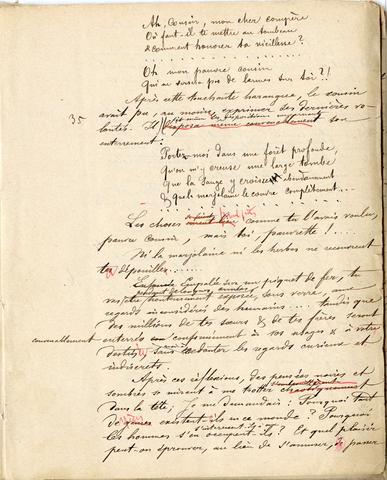 Ah, cousin, mon cher compère
Où faut-il te mettre au tombeau
& comment honorer ta vieillesse?
Oh mon pauvre cousin
Qui ne saurait pas de larmes sur toi?!
Après cette touchante harangue, le cousin
35 avait pu, au moins exprimer ses dernières vo-
lontés. Il disposa même convenablement son
enterrement:
Portez-moi dans une forêt profonde,
Qu'on m'y creuse une large tombe
Que la sauge y croisse abondamment
& que la marjolaine le couvre complètement...
Les choses comme tu l'avais voulu,
pauvre cousin, mais toi, pauvrette!....
Ni la marjolaine ni les herbes ne recouvrent
ta dépouille......
Empalée sur un piquet de fer, tu
vas être honteusement exposée, sous verre, aux
regards inconsidérés des humains.... tandis que
des millions de tes sœurs & de tes frères seront
convenablement enterrés conformément à vos usages & à votre
sans redouter les regards curieux et
indiscrets.
Après ces réflexions, des pensées noires et
sombres se mirent à me trotter
dans la tête, je me demandais: Pourquoi tant
de existent-ils en ce monde? Pourquoi
les hommes s'en occupent-ils? Et quel plaisir
peut-on éprouver, au lieu de s'amuser, à passer